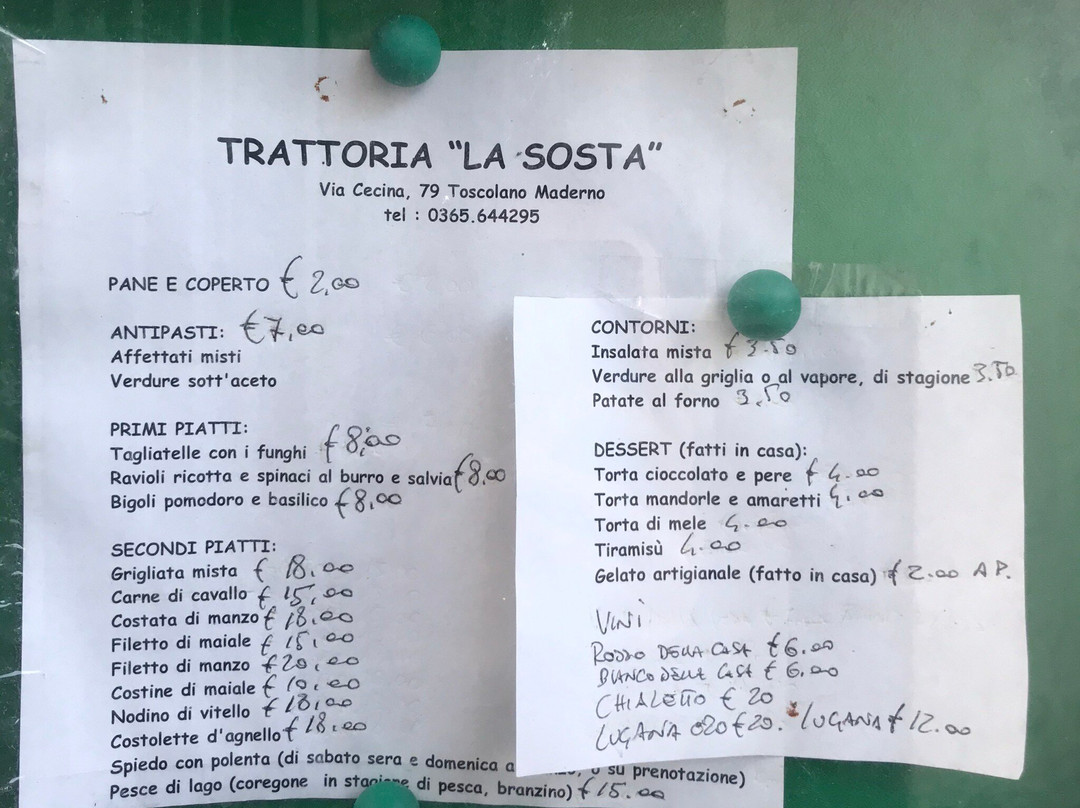 TRATTORIA "LA SOSTA"
Via Cecina, 79 Toscolano Maderno
tel : 0365.644295
PANE E COPERTO € 2,00
ANTIPASTI: €7,00
Affettati misti
Verdure sott'aceto
PRIMI PIATTI:
Tagliatelle con i funghi €8,00
Ravioli ricotta e spinaci al burro e salvia €8,00
Bigoli pomodoro e basilico €8,00
SECONDI PIATTI:
Grigliata mista € 18,00
Carne di cavallo € 15,00
Costata di manzo € 18,00
Filetto di maiale € 15,00
Filetto di manzo €20,00
Costine di maiale € 10,00
Nodino di vitello € 18,00
Costolette d'agnello € 18,00
Spiedo con polenta (di sabato sera e domenica a o su prenotazione)
Pesce di lago (coregone in stagione di pesca, branzino) €15.00
CONTORNI:
Insalata mista € 3.50
Verdure alla griglia o al vapore, di stagione 3.50
Patate al forno 3.50
DESSERT (fatti in casa):
Torta cioccolato e pere € 4.00
Torta mandorle e amaretti 4.00
Torta di mele 4.00
Tiramisù 4.00
Gelato artigianale (fatto in casa) €2.00 A P.
VINI
ROSSO DELLA CASA €6.00
BIANCO DELLA CASA € 6,00
CHIALETTO € 20
LUGANA €20. LUGANA € 12.00